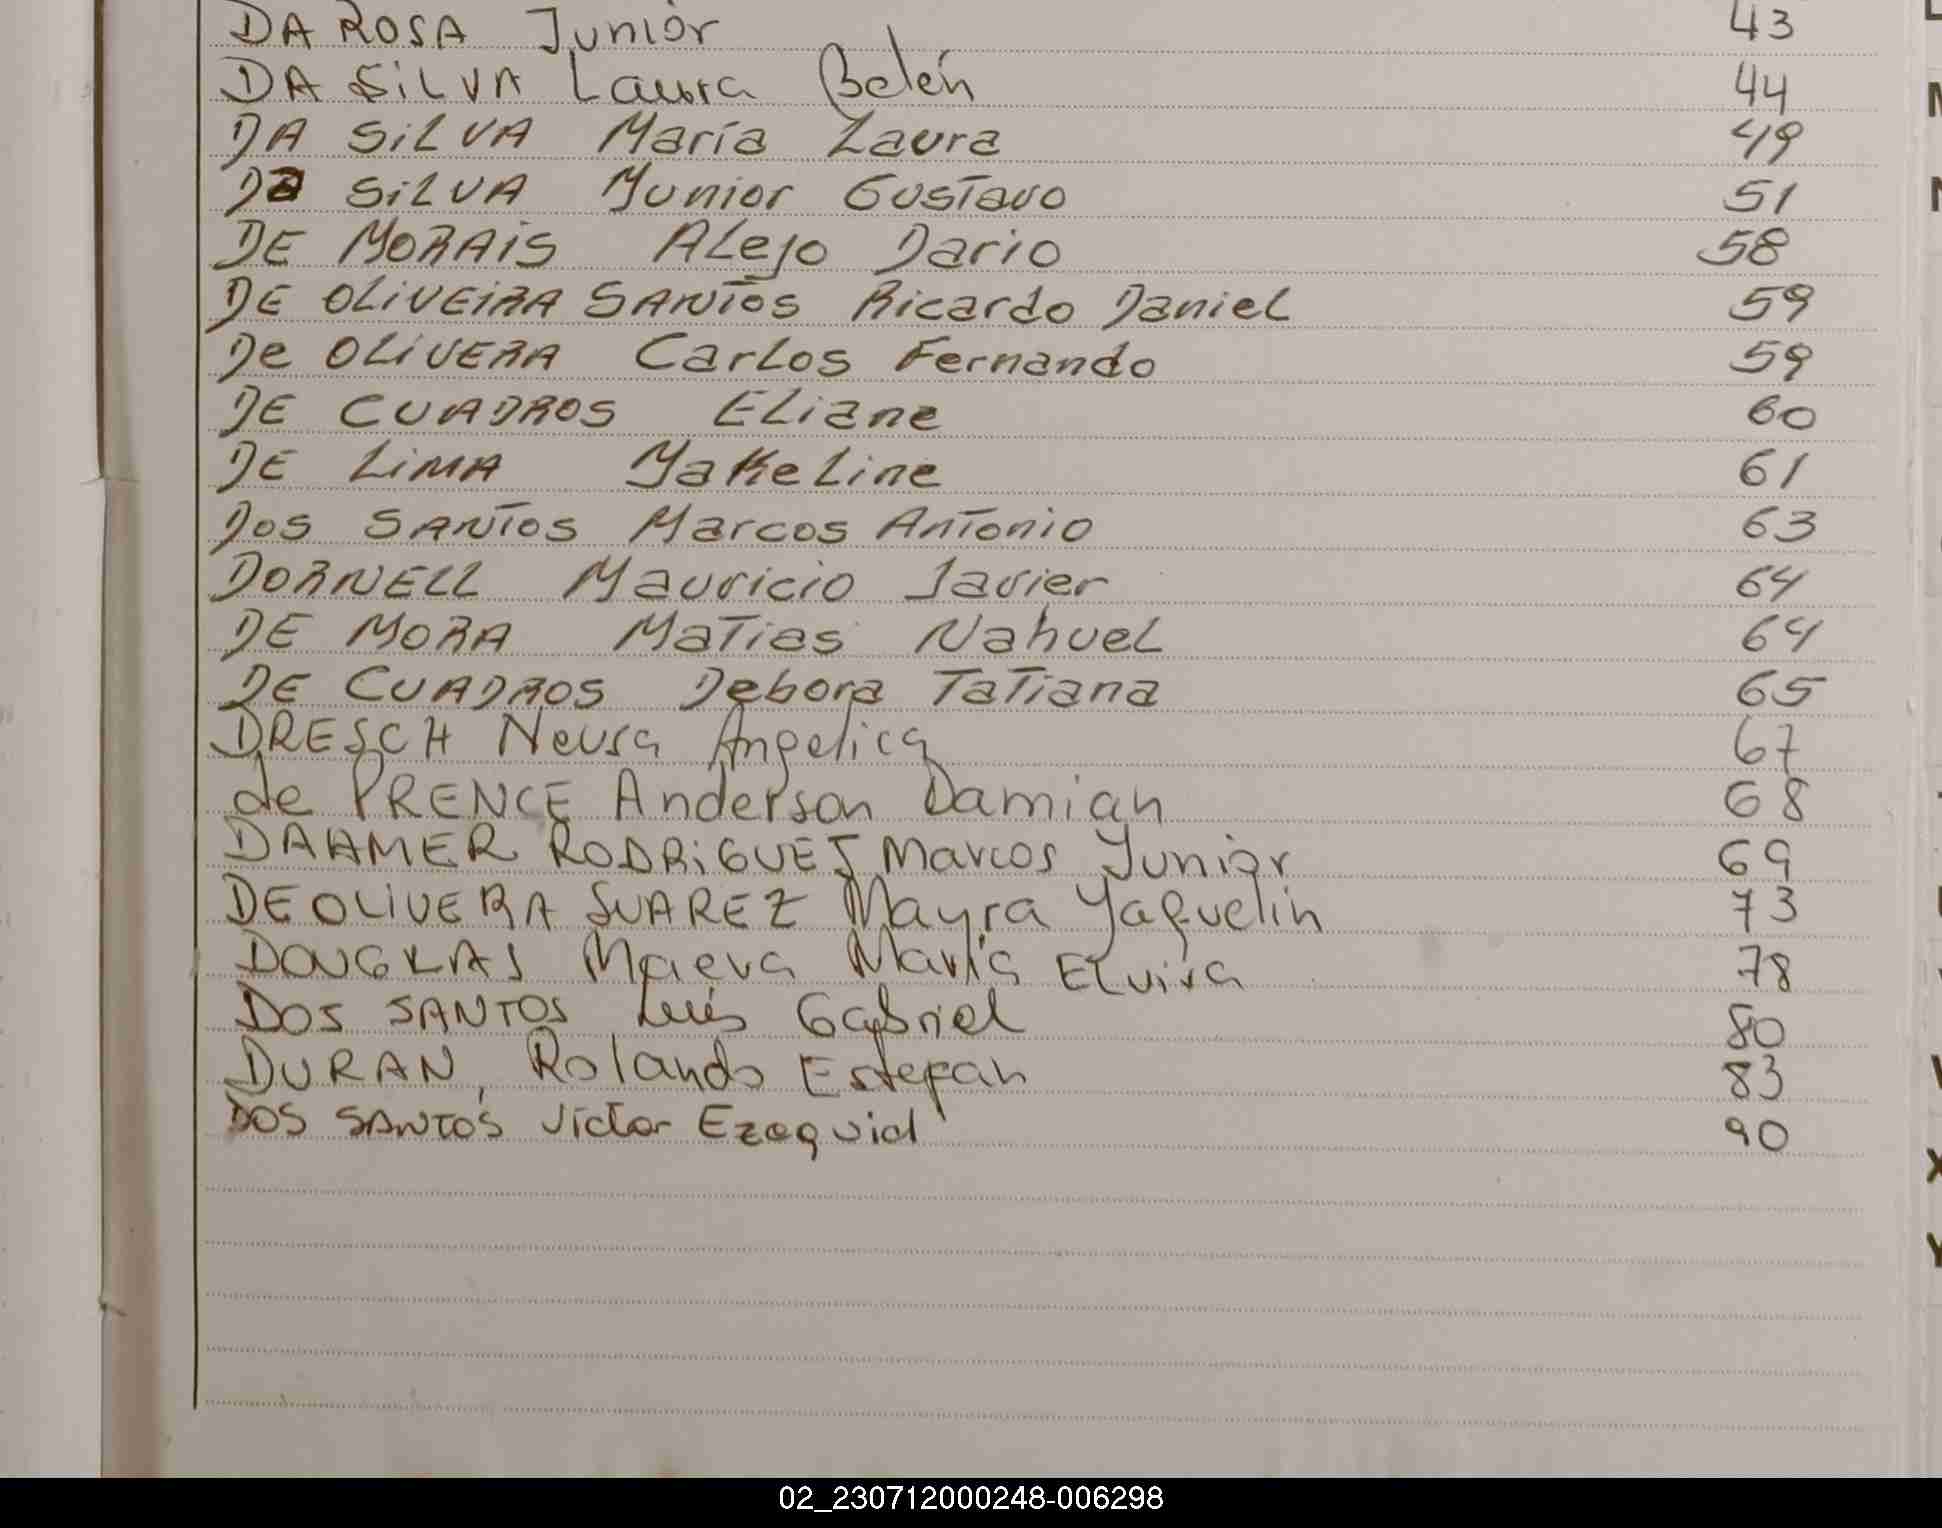 DA ROSA Junior 43
DA SILVA Laura Belén 44
DA SILVA María Laura 49
DA SILVA Yunior Gustavo 51
DE MORAIS Alejo Dario 58
DE OLIVEIRA SANTOS Ricardo Daniel 59
De OLIVERA Carlos Fernando 59
DE CUADROS Eliane 60
DE LIMA Yakeline 61
DOS SANTOS Marcos Antonio 63
DORNELL Mauricio Javier 64
DE MORA Matias Nahuel 64
DE CUADROS Debora Tatiana 65
DRESCH Neusa Angelica 67
de PRENCE Anderson Damian 68
DAHMER RODRIGUES Marcos Junior 69
DE OLIVERA SUAREZ Mayra Yaquelin 73
DOUGLAS Maeva María Elvira 78
DOS SANTOS Luis Gabriel 80
DURAN, Rolando Estefan 83
DOS SANTOS Victor Ezequiel 90
02_230712000248-006298